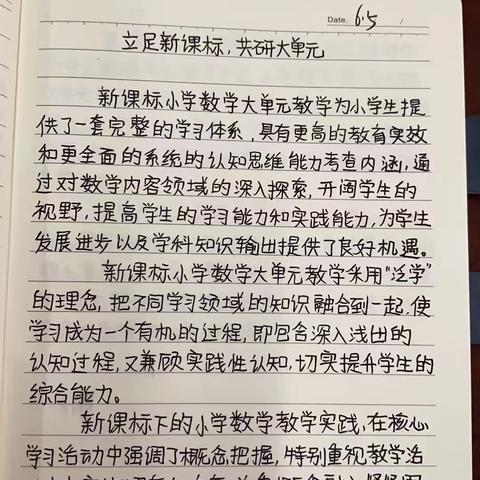 Date. 6.5
立足新课标,共研大单元
新课标小学数学大单元教学为小学生提
供了一套完整的学习体系,具有更高的教育实效
和更全面的系统的认知思维能力考查内涵,通
过对数学内容领域的深入探索,开阔学生的
视野,提高学生的学习能力和实践能力,为学生
发展进步以及学科知识输出提供了良好机遇。
新课标小学数学大单元教学采用“泛学”
的理念,把不同学习领域的知识融合到一起,使
学习成为一个有机的过程,即包含深入浅出的
认知过程,又兼顾实践性认知,切实提升学生的
综合能力。
新课标下的小学数学教学实践,在核心
学习活动中强调了概念把握,特别重视教学活